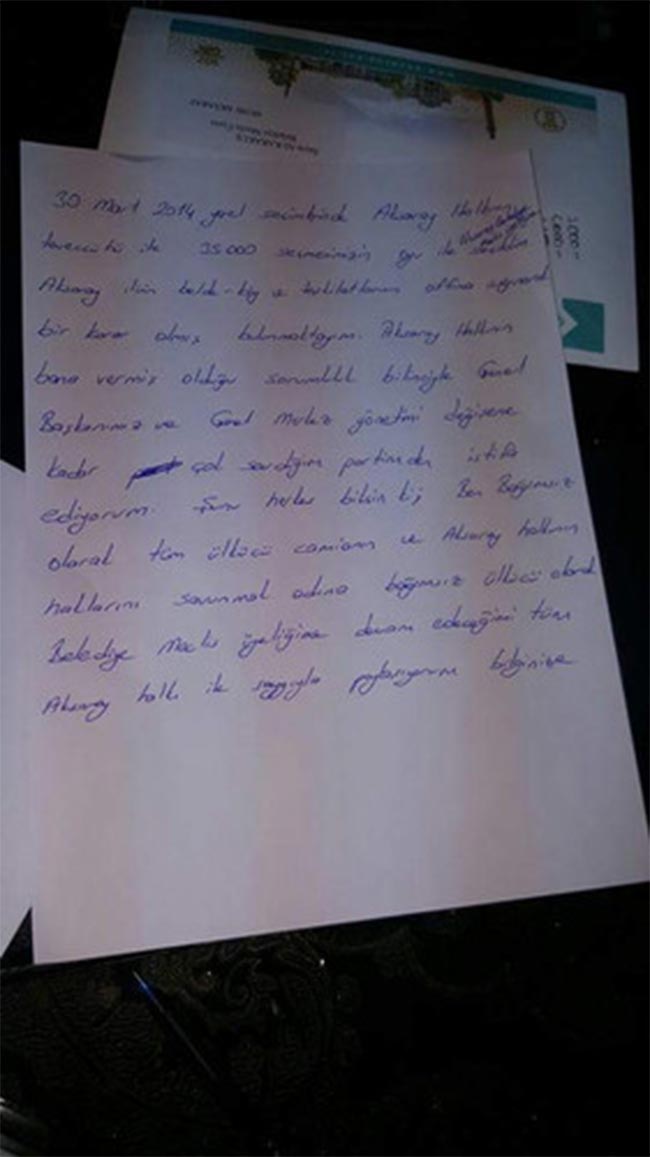 30 Mart 2014 yerel seçimlerinde Aksaray Halkının
teveccühü ile 35.000 seçmenimizin oyu ile
Aksaray ilinin belde - köy ve teşkilatlarının
bir karar almış bulunmaktayım. Aksaray Halkının
bana vermiş olduğu sorumluluk bilinciyle Genel
Başkanımız ve Genel Merkez yönetimi değişene
kadar çok sevdiğim partimden istifa
ediyorum. Şunu herkes bilsin ki; Ben Bağımsız
olarak tüm ülkücü camianın ve Aksaray halkının
haklarını savunmak adına bağımsız ülkücü olarak
Belediye Meclis üyeliğine devam edeceğimi tüm
Aksaray halkı ile saygıyla paylaşıyorum bilginize